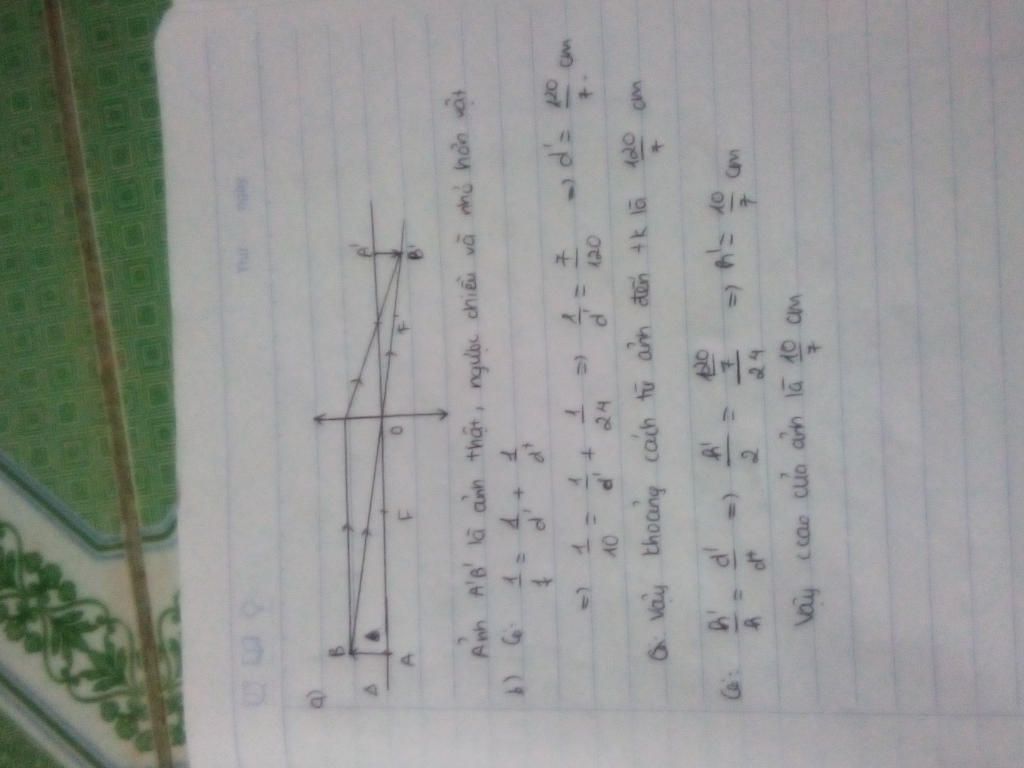 a)
B
Δ
A
F
O
F'
A'
B'
Ảnh A'B' là ảnh thật, ngược chiều và nhỏ hơn vật
b) Có: 1/f = 1/d' + 1/d
=> 1/10 = 1/d' + 1/24 => 1/d' = 7/120 => d' = 120/7 cm
Vậy khoảng cách từ ảnh đến tk là 120/7 cm
Có: h'/h = d'/d => h'/2 = (120/7)/24 => h' = 10/7 cm
Vậy ccao của ảnh là 10/7 cm